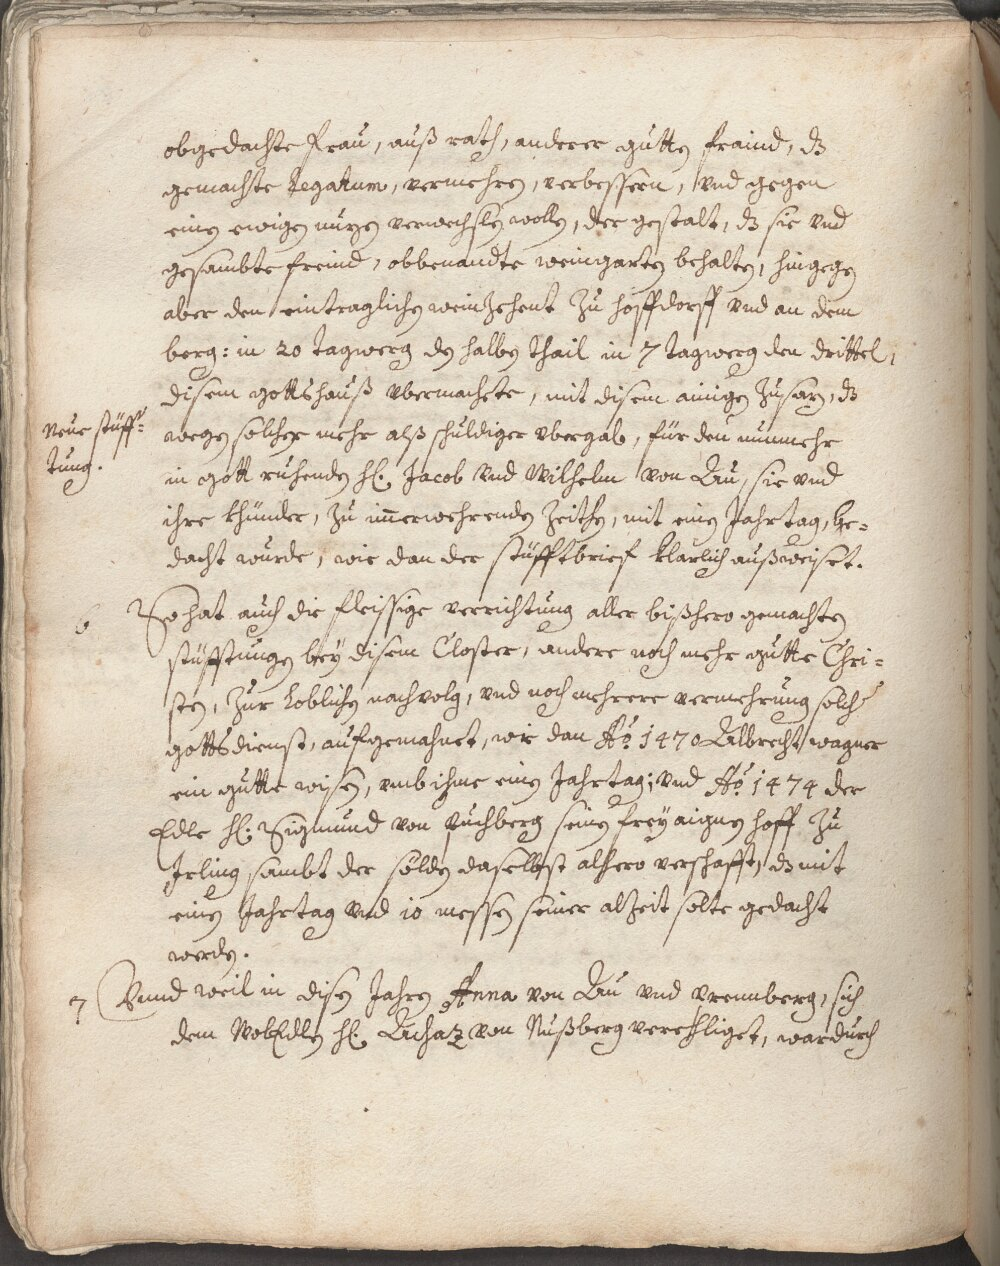 obgedachte Frau, auß rath, anderer gutten fraind, dz
gemachte Legatum, vermehren, verbessern, vnd gegen
einen ewigen nuzen verwechslen wollen, der gestalt, dz sie vnd
gesambte freind, obbenandte weingarten behalten, hingegen
aber den eintraglichen weinzehent zu hoffdorff vnd an dem
berg: in 20 tagwerg den halben thail in 7 tagwerg den drittel,
disem gottshauß vbermachete, mit disem ainigen zusaz, dz
Neue stüff=
tung.
wegen solcher mehr alß schuldiger vbergab, für den nunmehr
in gott ruhenden H. Jacob vnd Wilhelm von Au, sie vnd
ihre khünder, zu imerwehrenden Zeithen, mit einen Jahrtag, ge=
dacht wurde, wie dan der stüfftbrief klarlich außweiset.
6 So hat auch die fleissige verrichtung aller bißhero gemachten
stüfftungen bey disem Closter, andere noch mehr gutte Chri=
sten, zur loblichen nachvolg, vnd noch mehrere vermehrung solches
gottsdienst, aufgemahnet, wie dan Ao 1470 Albrecht wagner
ein gutte wisen, vmb ihme einen Jahrtag; vnd Ao 1474 der
Edle H. Sigmund von puchberg seinen frey aignen hoff zu
Irling sambt der sölden daselbst alhero verschafft, dz mit
einen Jahrtag vnd 10 messen seiner alzeit solte gedacht
werden.
7 Vnnd weil in disen Jahren Anna von Au vnd Prennberg, sich
dem WolEdlen H. Achaz von Nußberg verehliget, wardurch